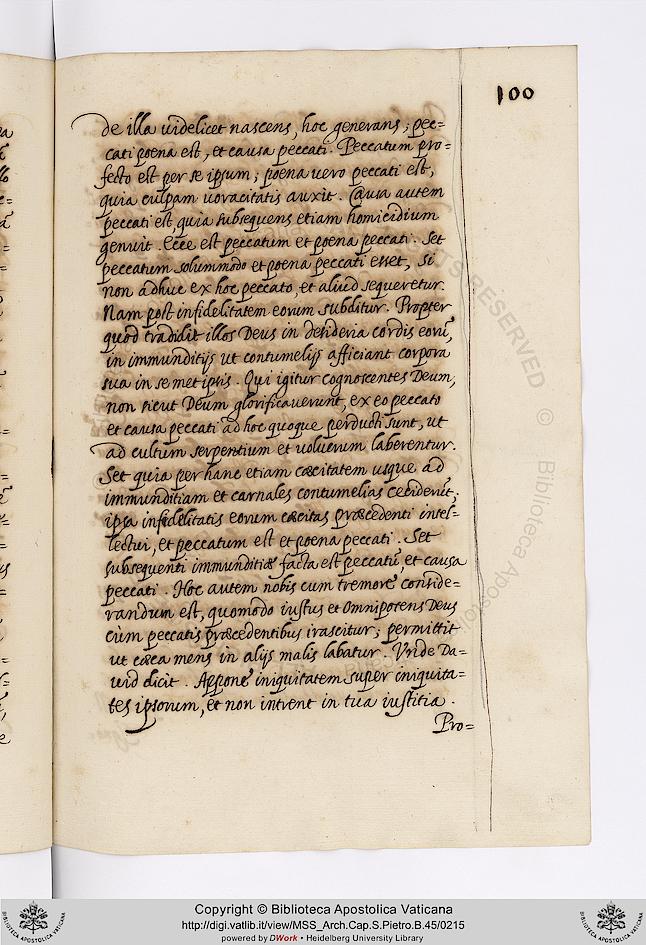 100
de illa uidelicet nascens, hoc generans; pec=
cati poena est, et causa peccati. Peccatum pro=
fecto est per se ipsum; poena uero peccati est,
quia culpam uoracitatis auxit. Causa autem
peccati est, quia subsequens etiam homicidium
genuit. Ecce est peccatum et poena peccati. Set
peccatum solummodo et poena peccati esset, si
non adhuc ex hoc peccato, et aliud sequeretur.
Nam post infidelitatem eorum subditur. Propter
quod tradidit illos Deus in desideria cordis eorũ,
in immunditijs ut contumelijs afficiant corpora
sua in semet ipsis. Qui igitur cognoscentes Deum,
non sicut Deum glorificauerunt, ex eo peccato
et causa peccati ad hoc quoque perducti sunt, ut
ad cultum serpentium et uolucrum laberentur.
Set quia per hanc etiam cæcitatem usque ad
immunditiam et carnales contumelias ceciderũt;
ipsa infidelitatis eorum cæcitas præcedenti intel=
lectui, et peccatum est et poena peccati. Set
subsequenti immunditiæ facta est peccatũ, et causa
peccati. Hoc autem nobis cum tremore conside=
randum est, quomodo iustus et Omnipotens Deus
cùm peccatis præcedentibus irascitur; permittit
ut cæca mens in alijs malis labatur. Vnde Da=
uid dicit. Appone iniquitatem super iniquita=
tes ipsorum, et non intrent in tua iustitia.
Pro=
RIGHTS RESERVED © Biblioteca Apostolica
Copyright © Biblioteca Apostolica Vaticana
http://digi.vatlib.it/view/MSS_Arch.Cap.S.Pietro.B.45/0215
powered by DWork • Heidelberg University Library